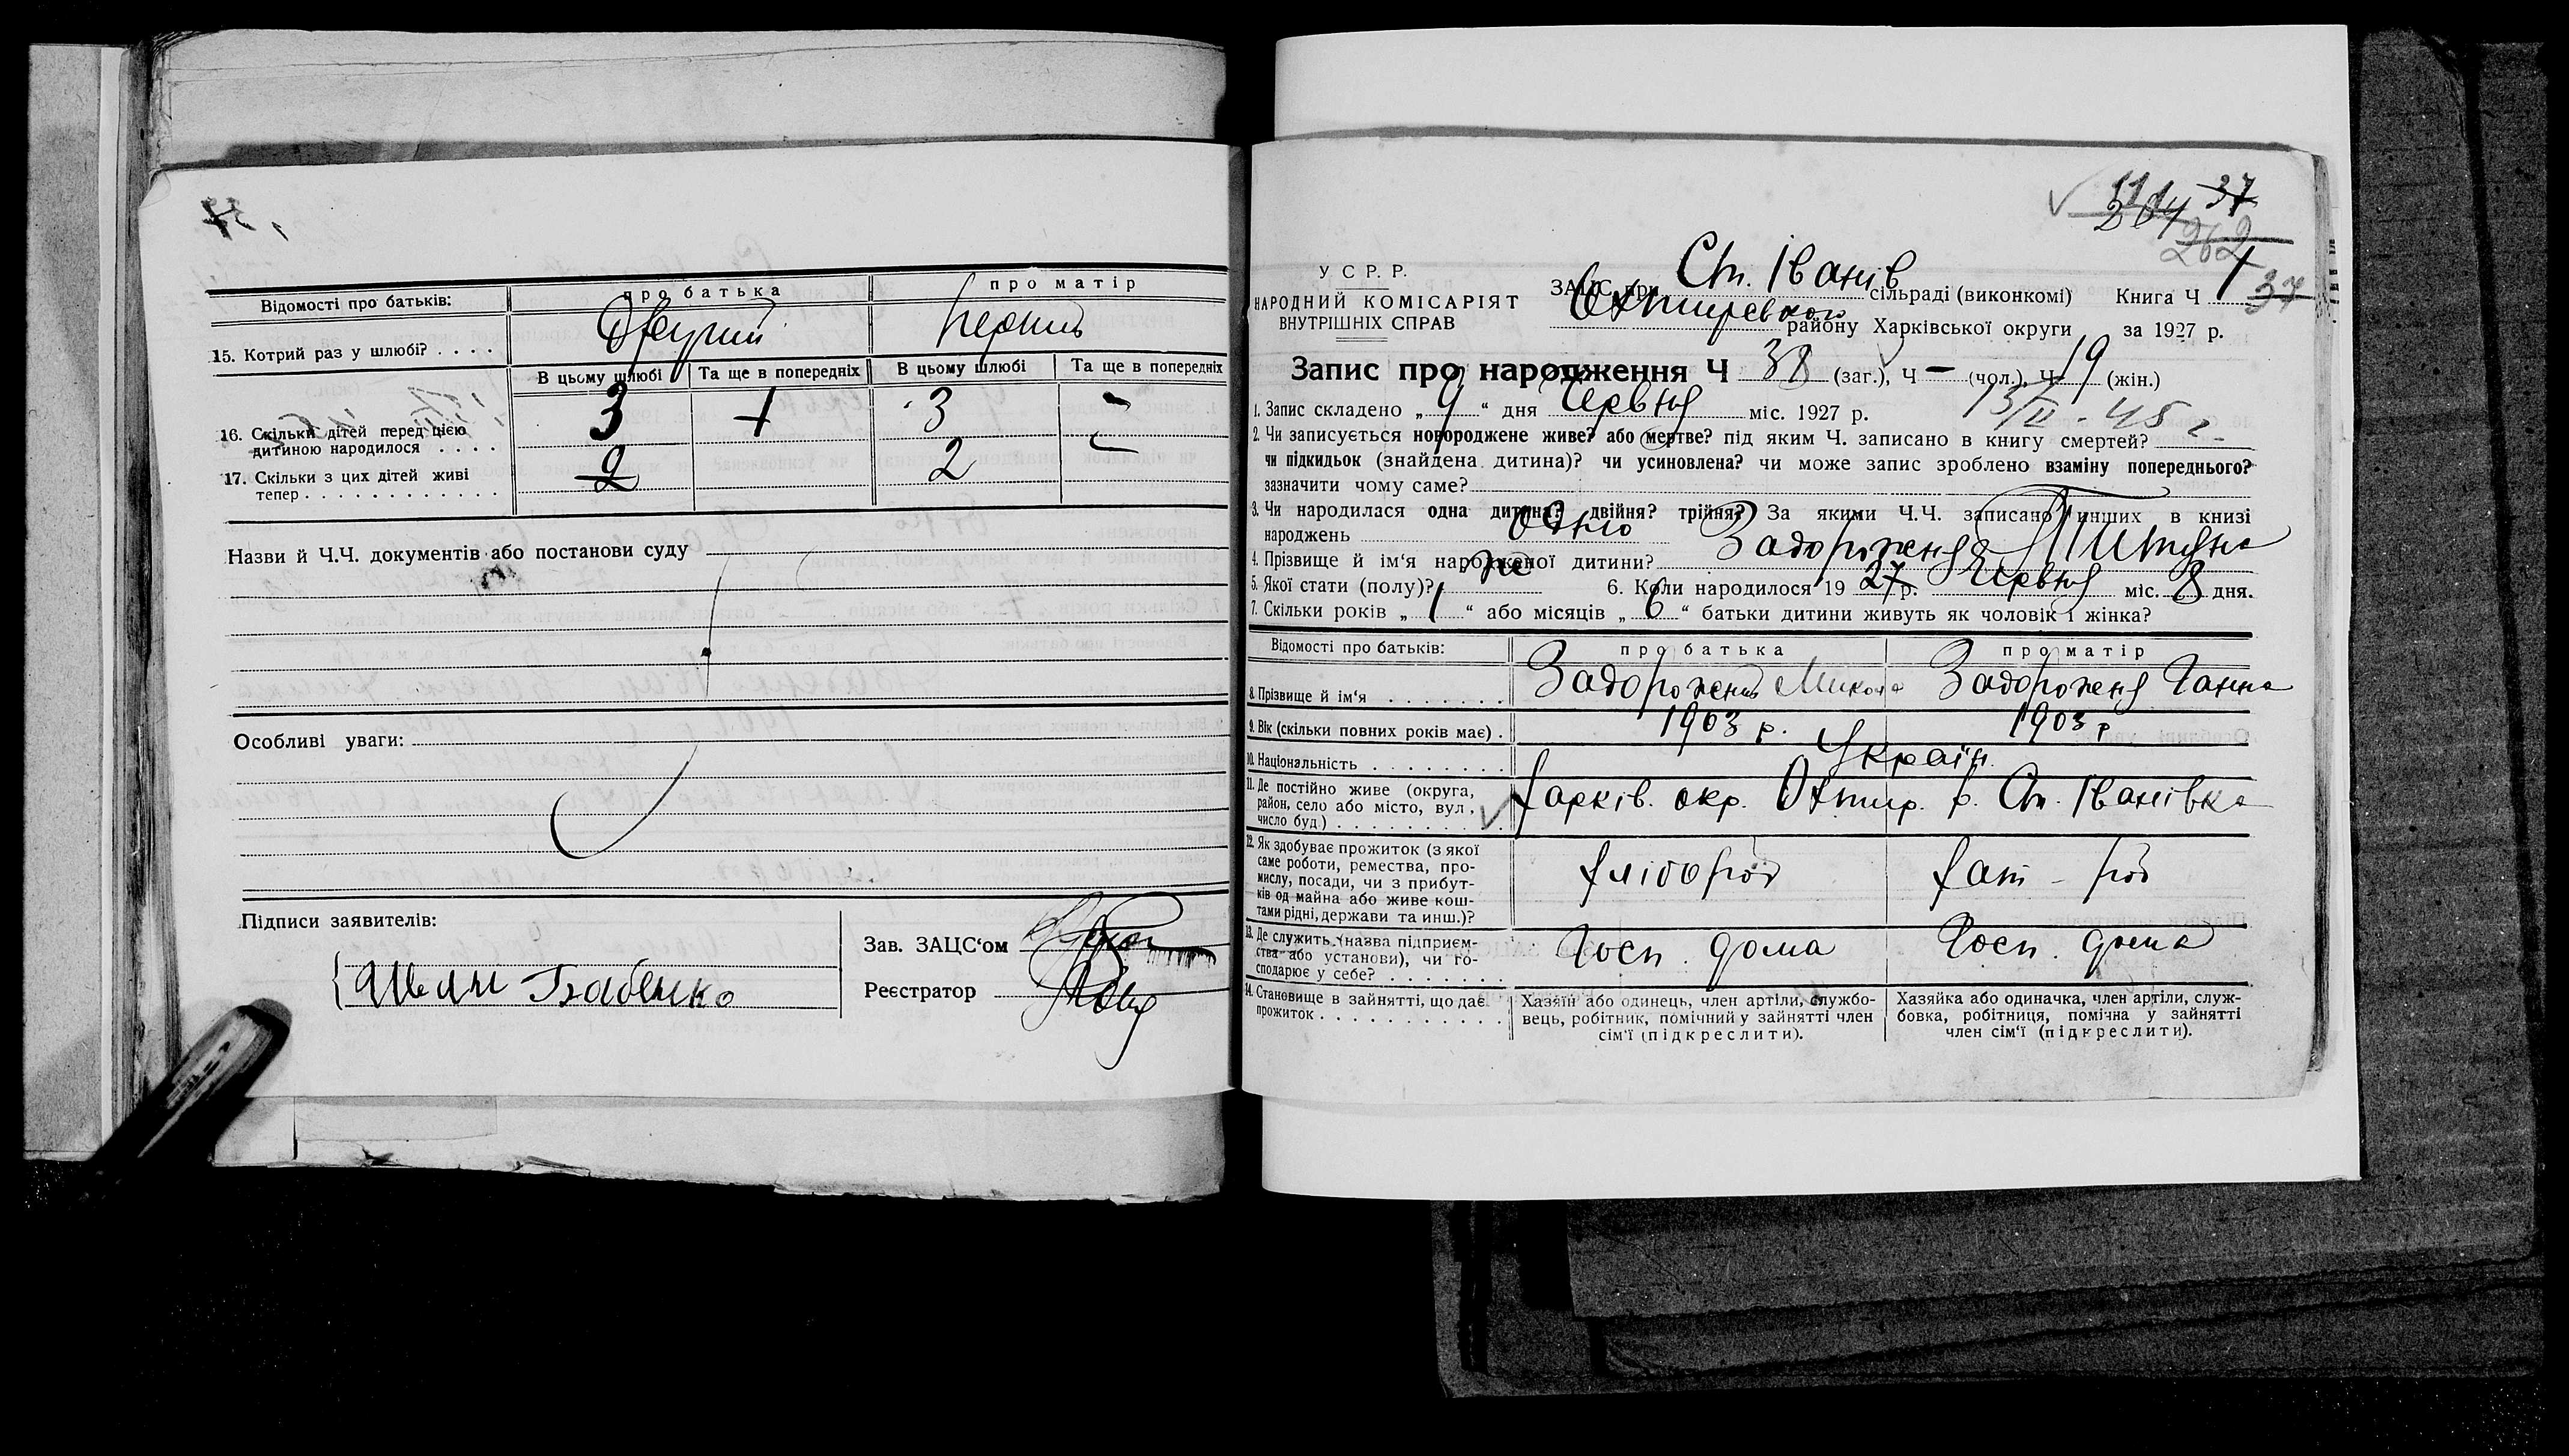 Відомості про батьків:
про батька
про матір
15. Котрий раз у шлюбі? . . . .
Другий
Перший
В цьому шлюбі
Та ще в попередніх
В цьому шлюбі
Та ще в попередніх
16. Скільки дітей перед цією
дитиною народилося . . . .
3
3
-
17. Скільки з цих дітей живі
тепер . . . . . . . . . . . .
2
2
Назви й Ч.Ч. документів або постанови суду
Особливі уваги:
Підписи заявителів:
Бабенко
Зав. ЗАЦС'ом
Реєстратор
37
262
37
У С Р. Р.
НАРОДНИЙ КОМІСАРІЯТ
ВНУТРІШНІХ СПРАВ
ЗАЦС при Ст. Іванів сільраді (виконкомі) Книга Ч 1
Охтирського району Харківської округи за 1927 р.
Запис про народження Ч 38 (заг.), Ч - (чол.), Ч 19 (жін.)
1. Запис складено „ 9 “ дня Червня міс. 1927 р.
13/II - 45 г
2. Чи записується новороджене живе? або мертве? під яким Ч. записано в книгу смертей?
чи підкидьок (знайдена дитина)? чи усиновлена? чи може запис зроблено взаміну попереднього?
зазначити чому саме?
3. Чи народилася одна дитина? двійня? трійня? За якими Ч.Ч. записано инших в книзі
народжень одно
4. Прізвище й ім'я народженої дитини? Задорожня
5. Якої стати (полу)? же 6. Коли народилося 19 27 р. Червня міс. 8 дня.
7. Скільки років „ 1 “ або місяців „ 6 “ батьки дитини живуть як чоловік і жінка?
Відомості про батьків:
про батька
про матір
8. Прізвище й ім'я . . . . . . .
Задорожний Микола
Задорожня Ганна
9. Вік (скільки повних років має) .
1903 р.
1903 р
10. Національність . . . . . . . .
Україн.
11. Де постійно живе (округа,
район, село або місто, вул.,
число буд.) . . . . . . . . .
Харків. окр. Охтир. р. Ст. Іванівка
12. Як здобуває прожиток (з якої
саме роботи, ремества, про-
мислу, посади, чи з прибут-
ків од майна або живе кош-
тами рідні, держави та инш.)?
хлібороб
хат - роб
13. Де служить (назва підприєм-
ства або установи), чи го-
сподарює у себе? . . . . . . .
Госп. дома
Госп. дома
14. Становище в зайнятті, що дає
прожиток . . . . . . . . . . .
Хазяїн або одинець, член артіли, службо-
вець, робітник, помічний у зайнятті член
сім'ї (підкреслити).
Хазяйка або одиначка, член артіли, служ-
бовка, робітниця, помічна у зайнятті
член сім'ї (підкреслити).